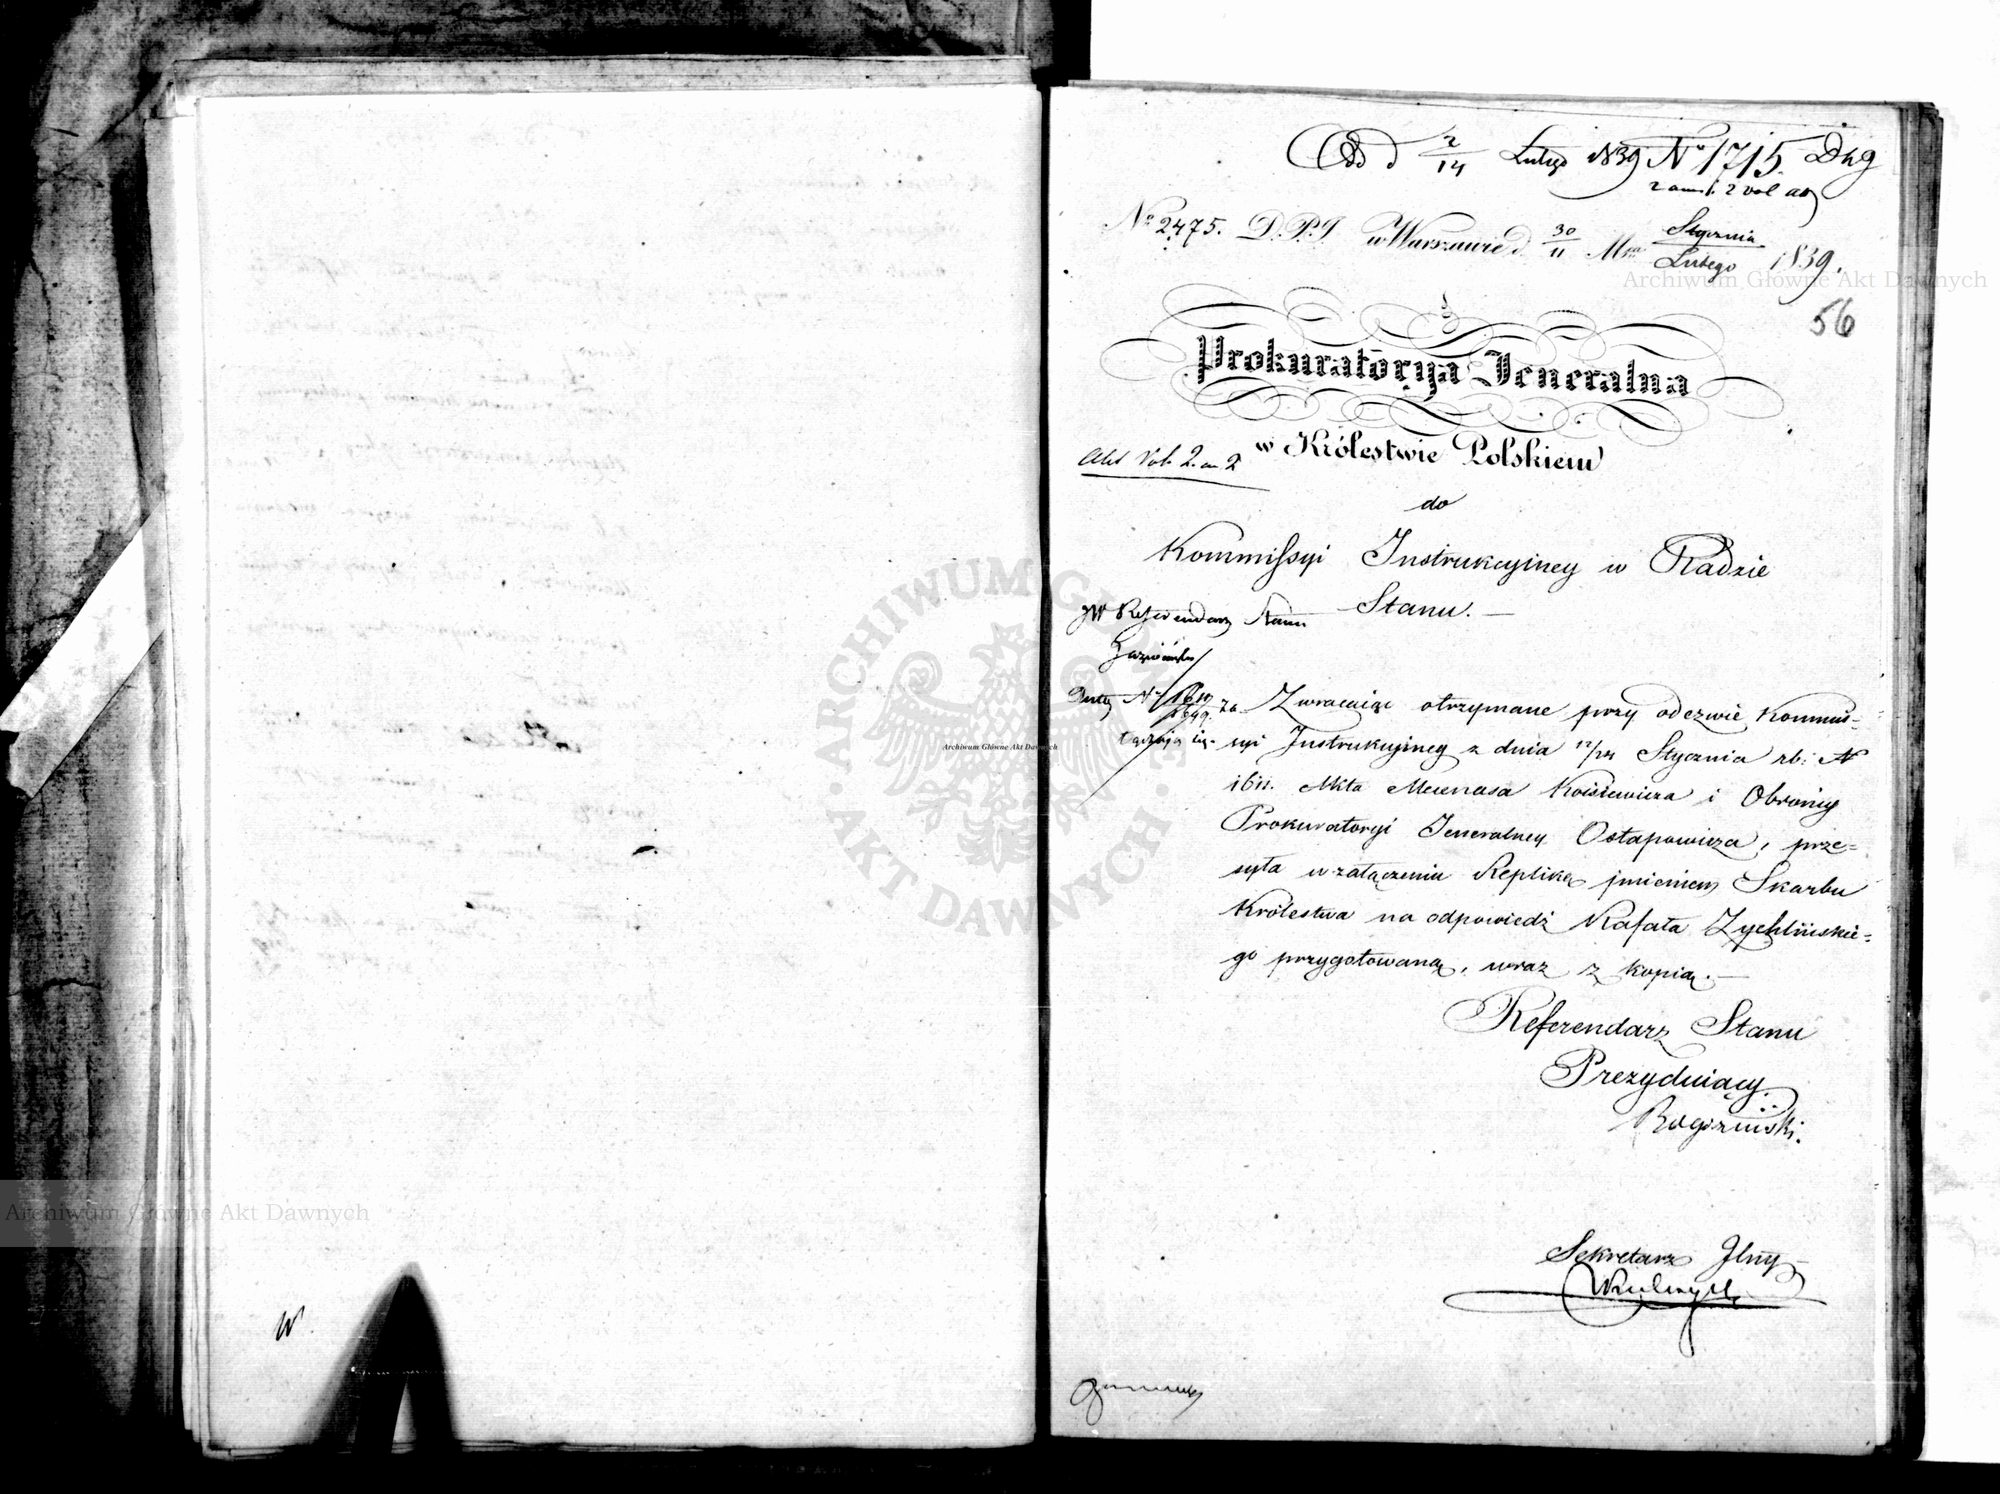 Od d 2/14 Lutego 1839 No 1715. Dng
z ann. 2 vol akt
No 2475. D.P.J w Warszawie d. 30/11 Mca Stycznia/Lutego 1839.
Archiwum Główne Akt Dawnych
56
Prokuratorya Jeneralna
w Królestwie Polskiem
Akt Vol. 2. an 2
do
Kommissyi Instrukcyiney w Radzie
Stanu. —
JW Referendarz Stanu
Zwracaiąc otrzymane przy odezwie Kommis=
syi Instrukcyiney z dnia 12/24 Stycznia rb: N
1611. Akta Mecenasa Kosiewicza i Obrońcy
Prokuratoryi Jeneralney Ostapowicza, prze=
syła w załączeniu Replikę imieniem Skarbu
Królestwa na odpowiedź Rafała Zychlińskie=
go przygotowaną, wraz z kopią. —
Referendarz Stanu
Prezyduiący
Rogoziński.
Sekretarz Jlny
ARCHIWUM GŁÓWNE AKT DAWNYCH
Archiwum Główne Akt Dawnych
Archiwum Główne Akt Dawnych